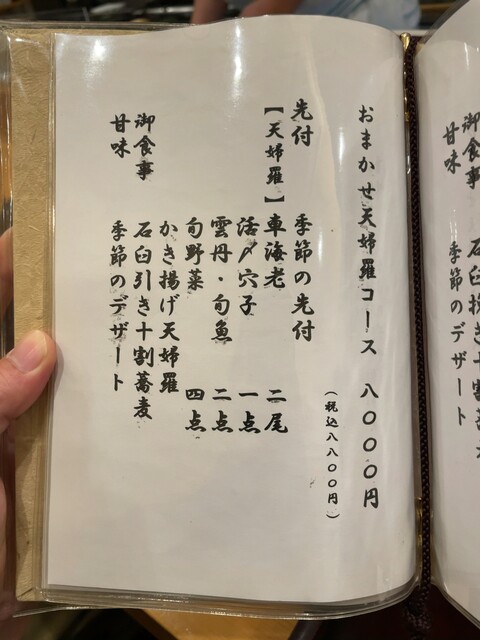 おまかせ天婦羅コース 八〇〇〇円
(税込八八〇〇円)
先付 季節の先付
【天婦羅】車海老 二尾
活〆穴子 一点
雲丹・旬魚 二点
旬野菜 四点
かき揚げ天婦羅
御食事 石臼引き十割蕎麦
甘味 季節のデザート
御食事 石臼挽き十割蕎
甘味 季節のデザート